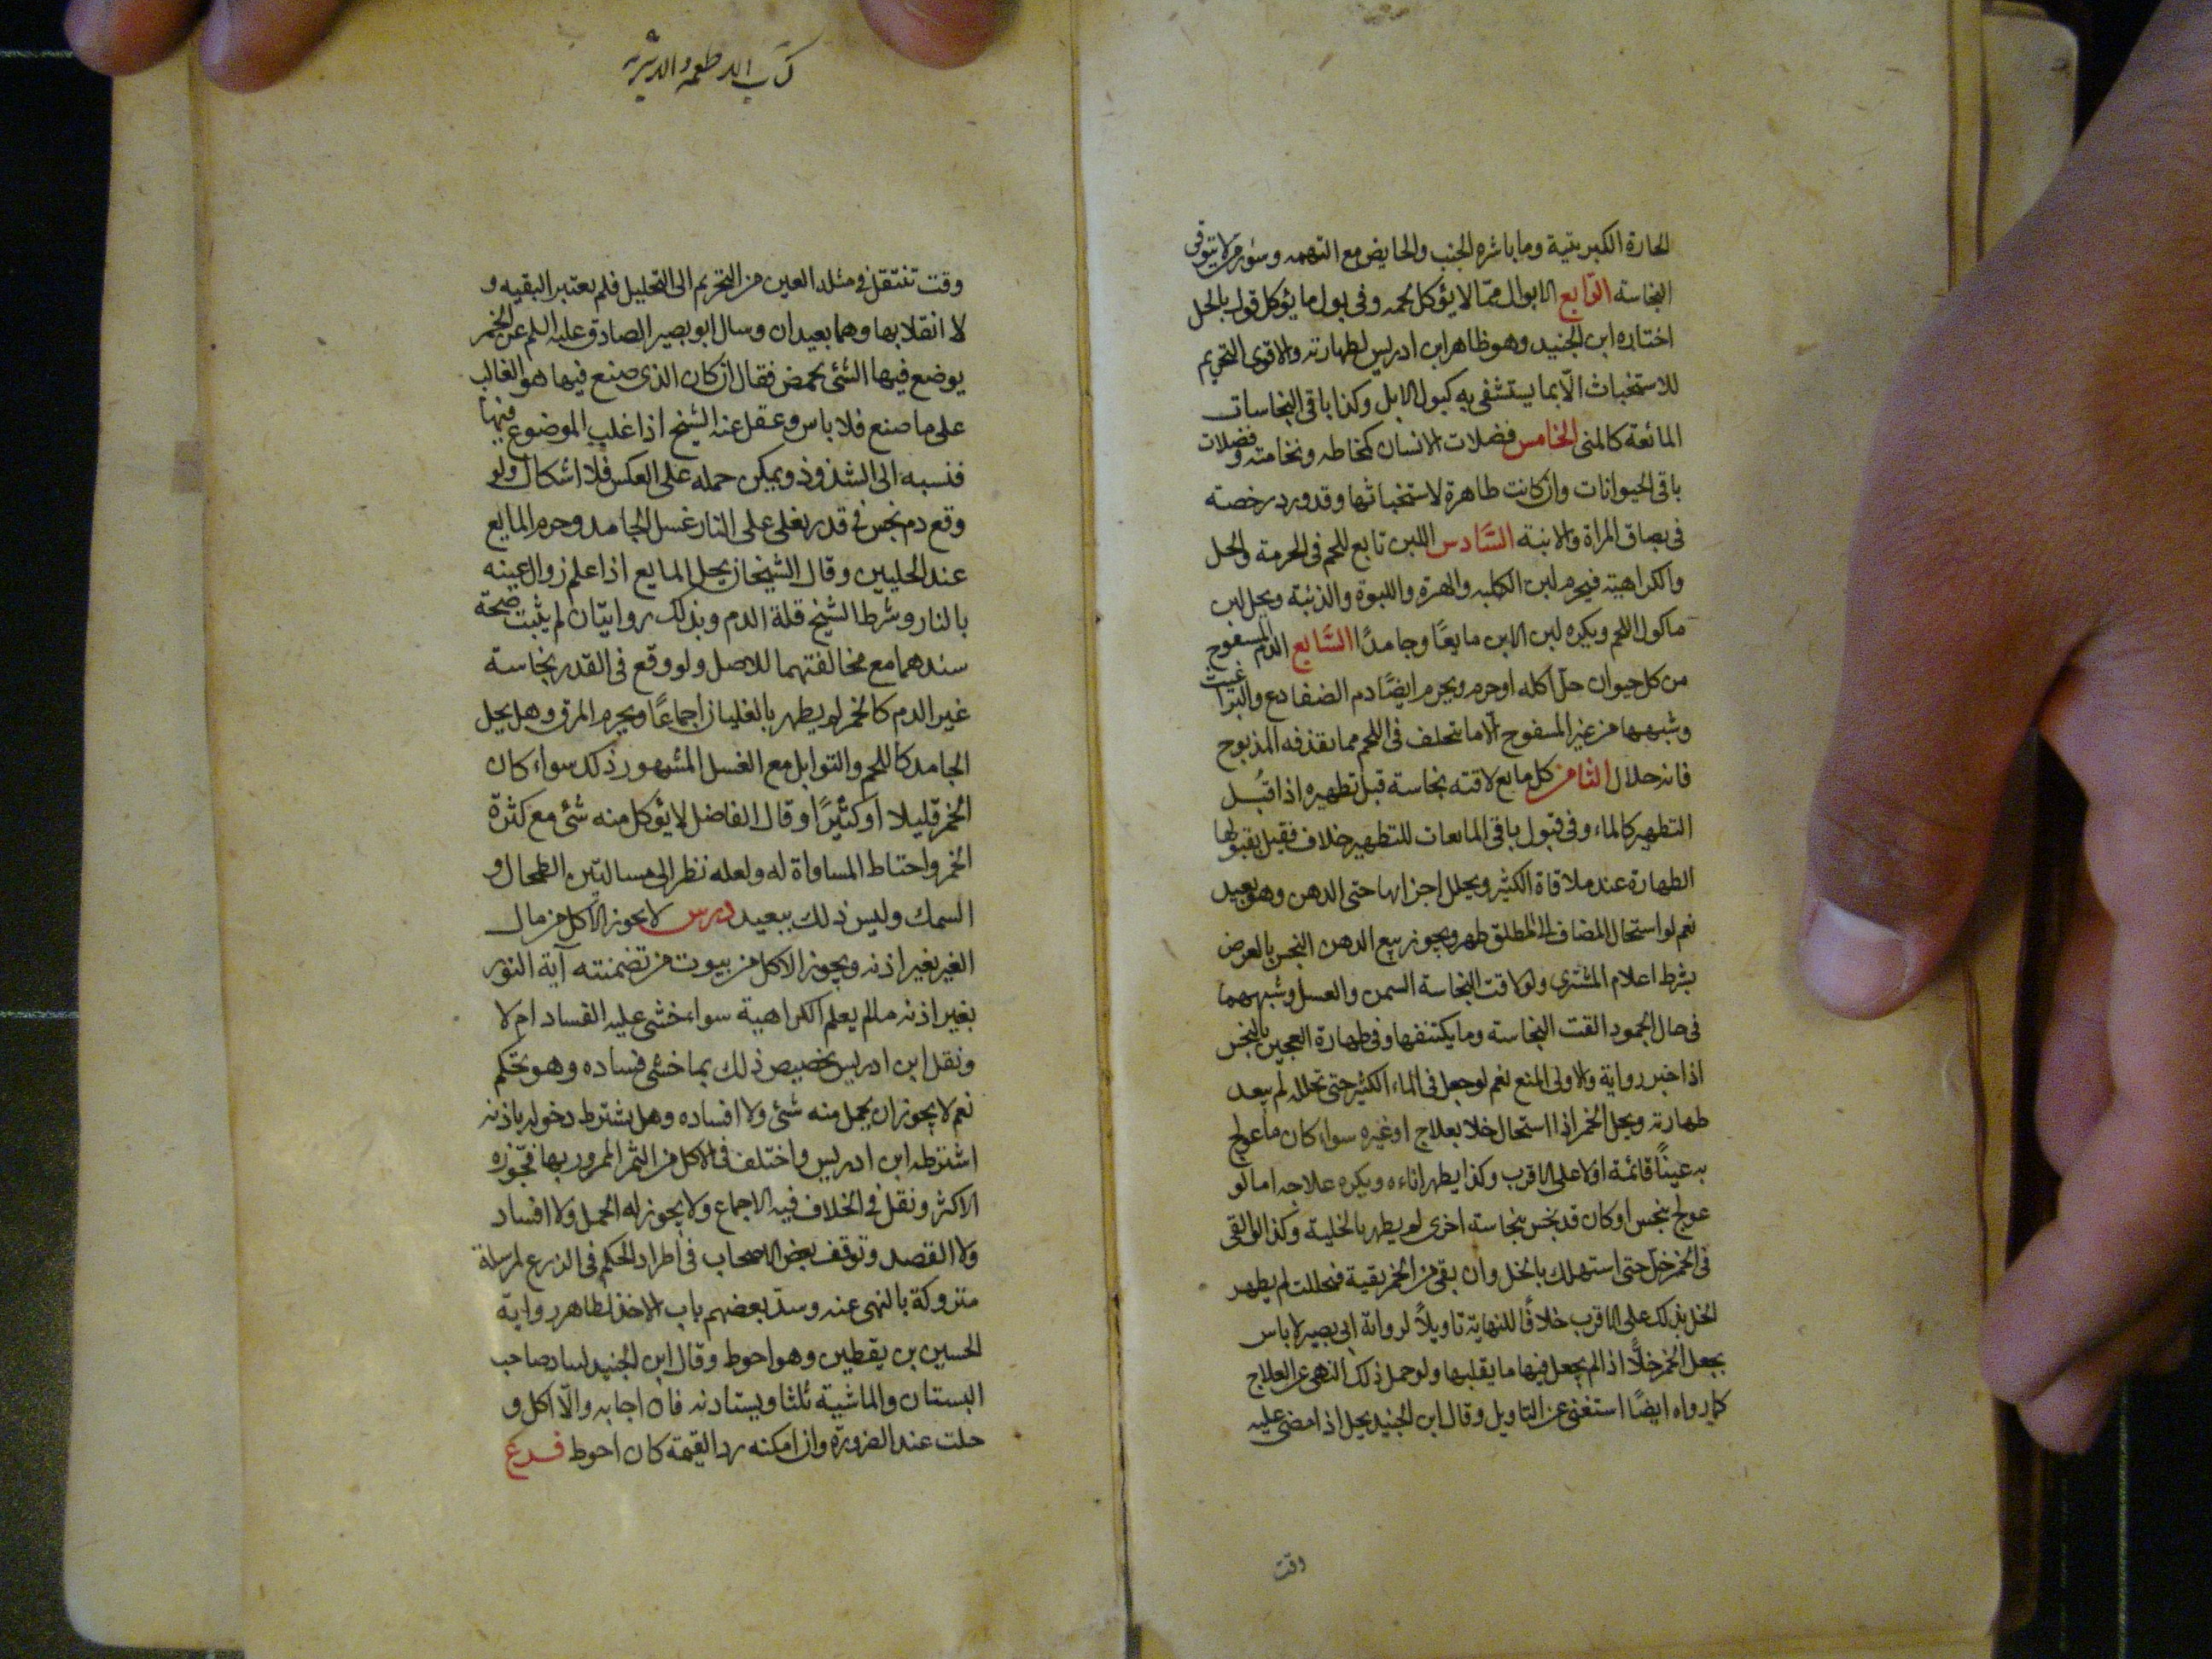 الحارة الكبريتية وما باشره الجنب والحايض مع التهمه وسؤر من لا يتوقى
النجاسة الرابع الابوال مما لا يؤكل لحمه وفى بول ما يؤكل قول بالحل
اختاره ابن الجنيد وهو ظاهر ابن ادريس لطهارته والاقوى التحريم
للاستخباث الّا بما يستشفى به كبول الابل وكذا باقى النجاسات
المائعة كالمنى الخامس فضلات الانسان كمخاطه ونخامته وفضلات
باقى الحيوانات وان كانت طاهرة لاستخباثها وقد ورد رخصته
فى بصاق المراة والابنة السَّادس اللبن تابع للحم فى الحرمة والحل
والكراهية فيحرم لبن الكلبه والهرة واللبوة والذئبة ويحل لبن
ماكول اللحم ويكره لبن الاتن مايعًا وجامدًا السَّابع الدم المسفوح
من كل حيوان حلّ اكله او حرم ويحرم ايضًا دم الضفادع والبراغيث
وشبهها من غير المسفوح الّا ما تخلف فى اللحم مما يقذفه المذبوح
فانه حلال الثامن كل مايع لاقته نجاسة قبل تطهيره اذا قبُل
التطهير كالماء وفى قبول باقى المايعات للتطهير خلاف فقيل بقبولها
الطهارة عند ملاقاة الكثير وتخلل اجزائها حتى الدهن وهو بعيد
نعم لو استحال المضاف الى المطلق طهر ويجوز بيع الدهن النجس بالعرض
بشرط اعلام المشترى ولو لاقت النجاسة السمن والعسل وشبههما
فى حال الجمود القت النجاسة وما يكتنفها وفى طهارة العجين بالنجس
اذا خبز رواية والاولى المنع نعم لو جعل فى الماء الكثير حتى تخلله لم يبعد
طهارته ويحل الخمر اذا استحال خلا بعلاج او غيره سواء كان ما عولج
به عينًا قائمة اولا على الاقرب وكذا يطهر اناءه ويكره علاجه اما لو
عولج بنجس او كان قد نجس بنجاسة اخرى لم يطهر بالخلية وكذا لو القى
فى الخمر خلّ حتى استهلك بالخل وان بقى من الخمر بقية فتخللت لم يطهر
الخل بذلك على الاقرب خلافًا للنهاية تاويلًا لرواية ابى بصير لا باس
بجعل الخمر خلًّا اذا لم يجعل فيها ما يقلبها ولو حمل ذلك النهى عن العلاج
كما رواه ايضًا استغنى عن التاويل وقال ابن الجنيد يحل اذا مضى عليه
وقت
كتاب الاطعمه والاشربه
وقت تنتقل فى مثله العين من التحريم الى التحليل فلم يعتبر البقيه و
لا انقلابها وهما بعيدان وسال ابو بصير الصادق عليه السلم عن الخمر
يوضع فيها الشئ يحمض فقال ان كان الذى صنع فيها هو الغالب
على ما صنع فلا باس وعقل عنه الشيخ اذا غلب الموضوع فيها
فنسبه الى الشذوذ ويمكن حمله على العكس فلا اشكال ولو
وقع دم نجس فى قدر يغلى على النار غسل الجامد وحرم المايع
عند الحليين وقال الشيخان يحل المايع اذا علم زوال عينه
بالنار وشرط الشيخ قلة الدم وبذلك روايتان لم يثبت صحة
سندهما مع مخالفتهما للاصل ولو وقع فى القدر نجاسة
غير الدم كالخمر لم يطهر بالغليان اجماعًا ويحرم المرق وهل يحل
الجامد كاللحم والتوابل مع الغسل المشهور ذلك سواء كان
الخمر قليلا او كثيرًا وقال الفاضل لا يؤكل منه شئ مع كثرة
الخمر واحتاط المساواة له ولعله نظر الى مسالتين الطحال و
السمك وليس ذلك ببعيد درس لا يجوز الاكل من مال
الغير بغير اذنه ويجوز الاكل من بيوت من تضمنته آية النور
بغير اذنه ما لم يعلم الكراهية سواء خشى عليه الفساد ام لا
ونقل ابن ادريس تخصيص ذلك بما خشى فساده وهو تحكم
نعم لا يجوز ان يحمل منه شئ ولا افساده وهل يشترط دخوله باذنه
اشترطه ابن ادريس واختلف فى الاكل من الثمر الممرور بها فجوّزه
الاكثر ونقل فى الخلاف فيه الاجماع ولا يجوز له الحمل ولا افساد
ولا القصد وتوقف بعض الاصحاب فى اطراد الحكم فى الزرع لمرسلة
متروكة بالنهى عنه وسدّ بعضهم باب الاخذ لظاهر رواية
الحسين بن يقطين وهو احوط وقال ابن الجنيد لساد صاحب
البستان والماشية ثلثا ويستاذنه فان اجابه والّا اكل و
حلت عند الضرورة وان امكنه رد القيمة كان احوط فرع